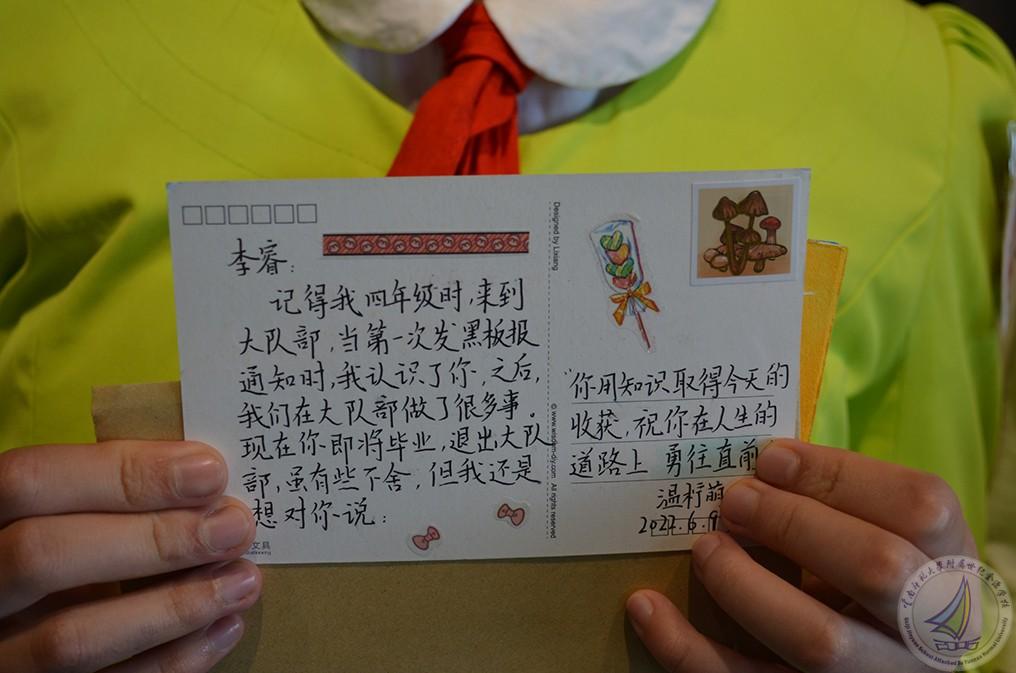 李睿：
记得我四年级时，来到
大队部，当第一次发黑板报
通知时，我认识了你，之后，
我们在大队部做了很多事。
现在你即将毕业，退出大队
部，虽有些不舍，但我还是
想对你说：
文具
Designed by Lixiang
© www.wisdom-diy.com All rights reserved
“你用知识取得今天的
收获，祝你在人生的
道路上 勇往直前
温
6.9
云南师范大学附属世纪金源学校